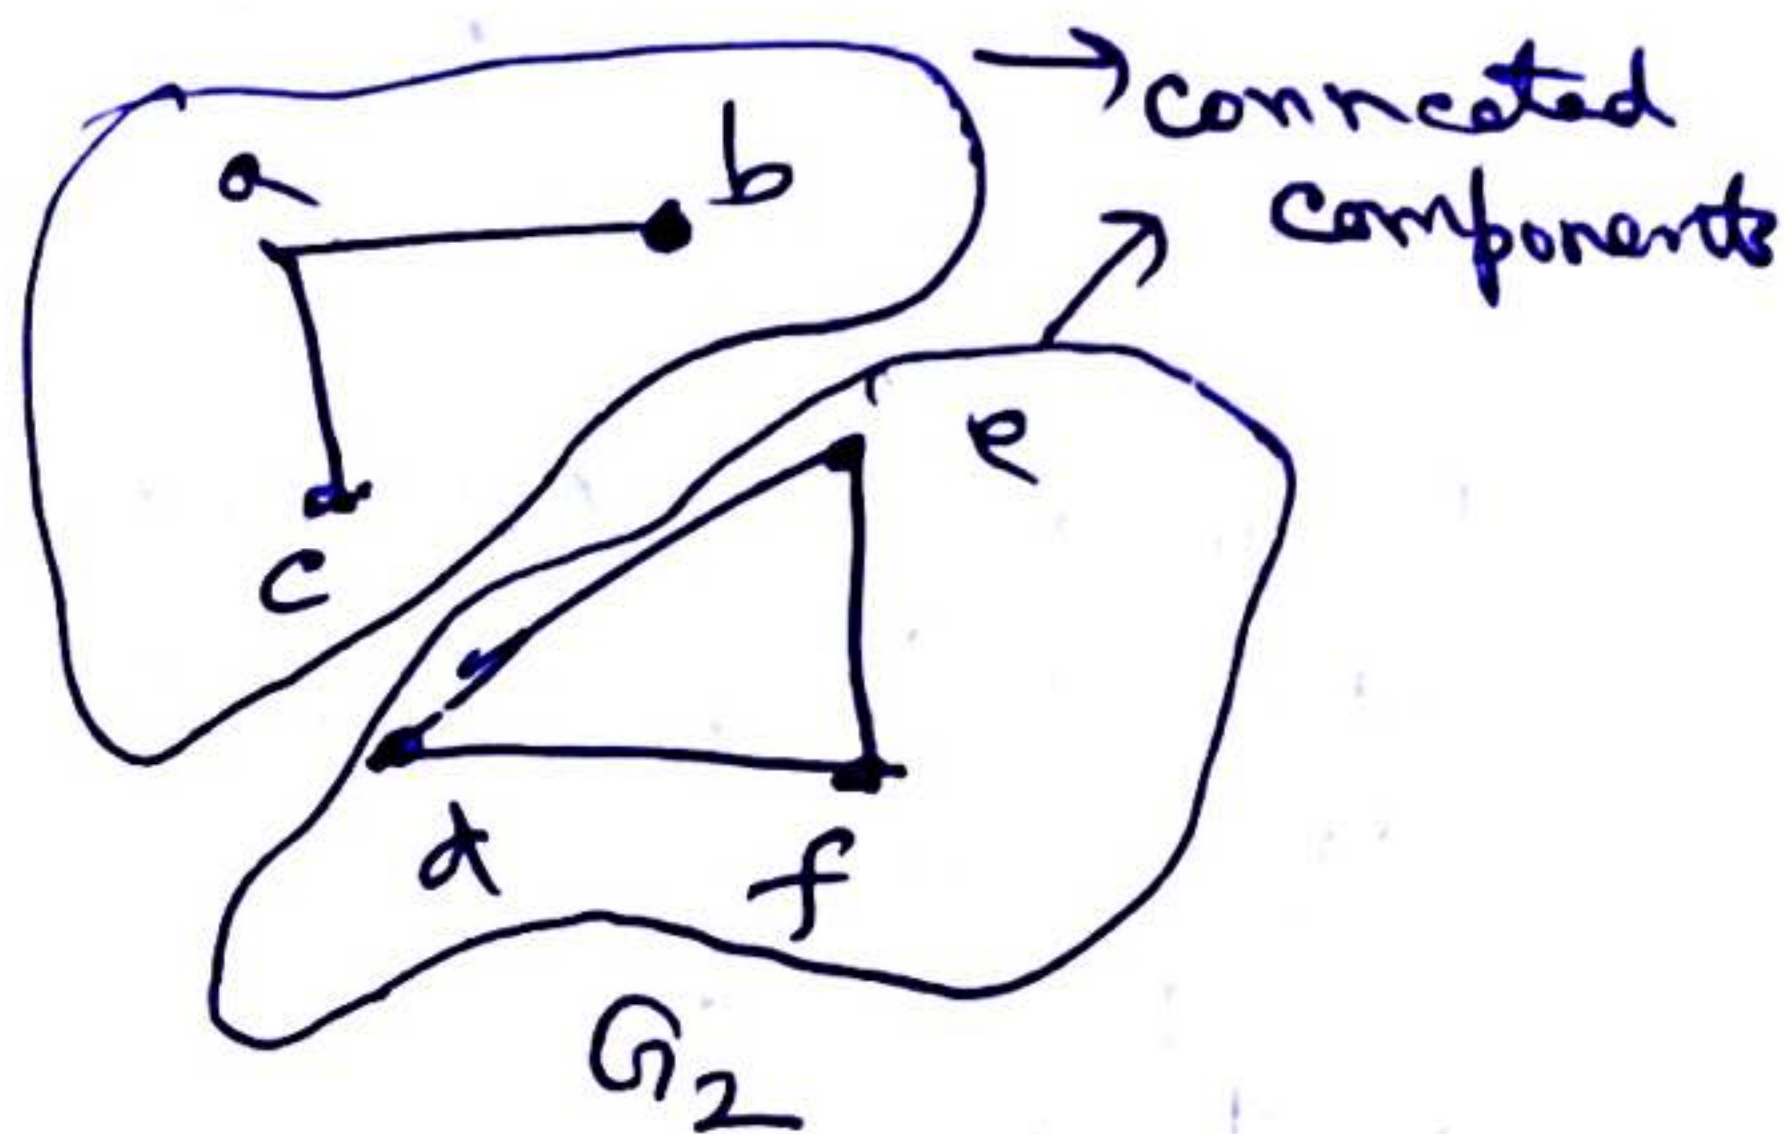 → conncated
components
a
b
c
e
d
f
G2